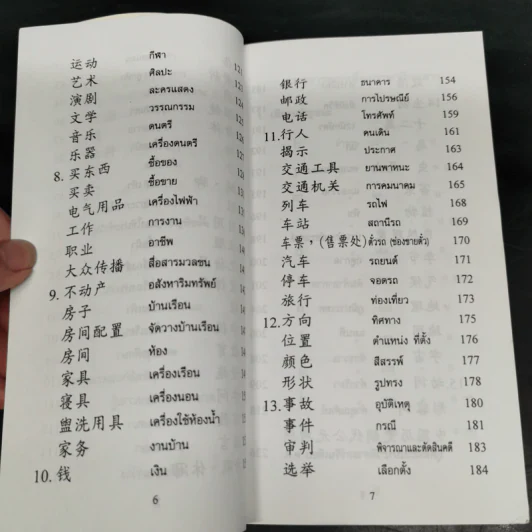 运动 กีฬา
艺术 ศิลปะ
演剧 ละครแสดง
文学 วรรณกรรม
音乐 ดนตรี
乐器 เครื่องดนตรี
8. 买东西 ซื้อของ
买卖 ซื้อขาย
电气用品 เครื่องไฟฟ้า
工作 การงาน
职业 อาชีพ
大众传播 สื่อสารมวลชน
9. 不动产 อสังหาริมทรัพย์
房子 บ้านเรือน
房间配置 จัดวางบ้านเรือน
房间 ห้อง
家具 เครื่องเรือน
寝具 เครื่องนอน
盥洗用具 เครื่องใช้ห้องน้ำ
家务 งานบ้าน
10. 钱 เงิน
6
银行 ธนาคาร 154
邮政 การไปรษณีย์ 156
电话 โทรศัพท์ 159
11. 行人 คนเดิน 161
揭示 ประกาศ 163
交通工具 ยานพาหนะ 164
交通机关 การคมนาคม 165
列车 รถไฟ 168
车站 สถานีรถ 169
车票，(售票处) ตั๋วรถ (ช่องขายตั๋ว) 170
汽车 รถยนต์ 171
停车 จอดรถ 172
旅行 ท่องเที่ยว 173
12. 方向 ทิศทาง 175
位置 ตำแหน่ง ที่ตั้ง 176
颜色 สีสรรพ์ 177
形状 รูปทรง 178
13. 事故 อุบัติเหตุ 180
事件 กรณี 181
审判 พิจารณาและตัดสินคดี 183
选举 เลือกตั้ง 184
7